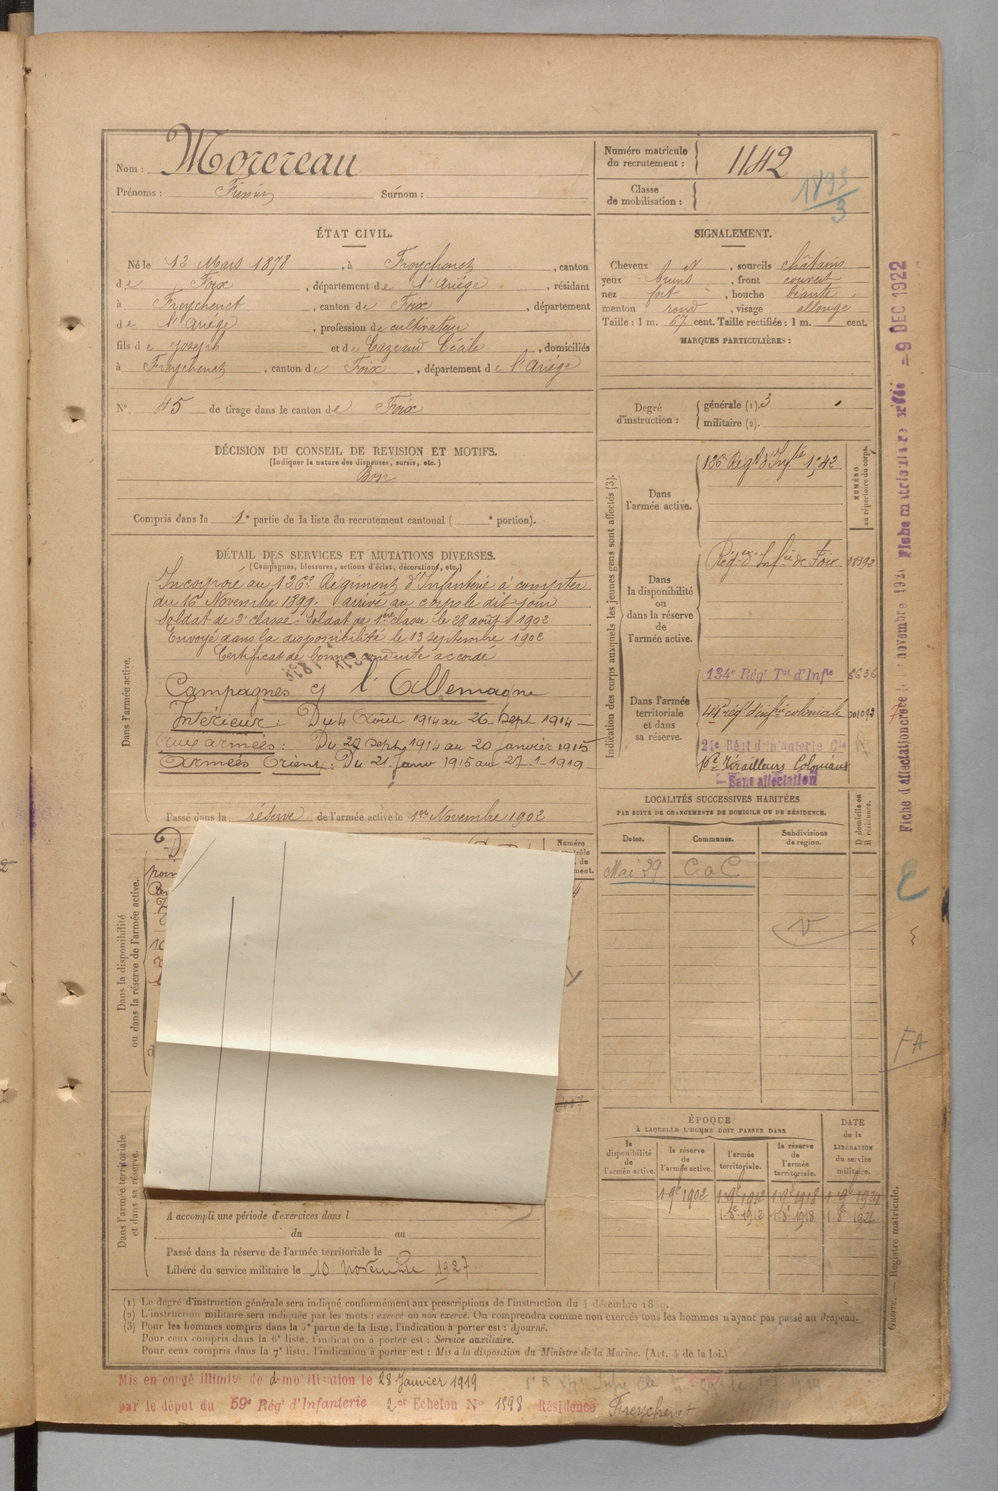 Nom : Morereau
Prénoms : Firmin Surnom :
Numéro matricule du recrutement : 1142
Classe de mobilisation :
ÉTAT CIVIL.
Né le 12 Mars 1878, à Freychenet, canton
de Foix, département de l'Ariège, résidant
à Freychenet, canton de Foix, département
de l'Ariège, profession de cultivateur
fils de Joseph et de Cazeaud Cécile, domiciliés
à Freychenet, canton de Foix, département de l'Ariège
N° 45 de tirage dans le canton de Foix
DÉCISION DU CONSEIL DE REVISION ET MOTIFS.
(Indiquer la nature des dispenses, sursis, etc.)
Bon
Compris dans la 1e partie de la liste du recrutement cantonal ( e portion).
DÉTAIL DES SERVICES ET MUTATIONS DIVERSES.
(Campagnes, blessures, actions d'éclat, décorations, etc.)
Dans l'armée active.
Incorporé au 126e Régiment d'Infanterie à compter
du 16 Novembre 1899. arrivé au corps le dit jour
Soldat de 2e classe. Soldat de 1ère classe le 28 août 1902
Envoyé dans la disponibilité le 13 septembre 1902
Certificat de bonne conduite accordé
Campagnes c/ l'Allemagne
Intérieur : Du 4 Août 1914 au 26 Sept 1914
Aux armées : Du 27 Sept 1914 au 20 janvier 1915
Armées Orient : Du 21 Janv 1916 au 27-1-1919
Passé dans la réserve de l'armée active le 1er Novembre 1902
SIGNALEMENT.
Cheveux et, sourcils châtains
yeux bruns, front couvert
nez fort, bouche béante,
menton rond, visage allongé
Taille : 1 m. 67 cent. Taille rectifiée : 1 m. cent.
MARQUES PARTICULIÈRES :
Degré d'instruction : générale (1). 3
militaire (2).
Indication des corps auxquels les jeunes gens sont affectés (3).
NUMÉRO au répertoire du corps.
Dans l'armée active.
126e Régt d'Infie 1542
Dans la disponibilité ou dans la réserve de l'armée active.
Régt d'Infie de Foix
Dans l'armée territoriale et dans sa réserve.
134e Régt Tal d'Infie 5636
44e régt d'infie coloniale
24e Régt d'Infanterie Cle
16e Tirailleurs Coloniaux
Sans affectation
LOCALITÉS SUCCESSIVES HABITÉES
PAR SUITE DE CHANGEMENTS DE DOMICILE OU DE RÉSIDENCE.
Dates. Communes. Subdivisions de région. D domicile ou R résidence.
Mai 29 CaC
V
Dans la disponibilité ou dans la réserve de l'armée active.
Dans l'armée territoriale et dans sa réserve.
ÉPOQUE
À LAQUELLE L'HOMME DOIT PASSER DANS
DATE de la LIBÉRATION du service militaire.
la disponibilité de l'armée active. la réserve de l'armée active. l'armée territoriale. la réserve de l'armée territoriale.
1 9e 1902 1 9e 1912 1 9e 1918
1 8e 1912 1 8e 1918
A accompli une période d'exercices dans l
du au
Passé dans la réserve de l'armée territoriale le
Libéré du service militaire le 10 novembre 1927.
(1) Le degré d'instruction générale sera indiqué conformément aux prescriptions de l'instruction du 4 décembre 1889.
(2) L'instruction militaire sera indiquée par les mots : exercé ou non exercé. On comprendra comme non exercés tous les hommes n'ayant pas passé au drapeau.
(3) Pour les hommes compris dans la 5e partie de la liste, l'indication à porter est : Ajourné.
Pour ceux compris dans la 6e liste, l'indication à porter est : Service auxiliaire.
Pour ceux compris dans la 7e liste, l'indication à porter est : Mis à la disposition du Ministre de la Marine. (Art. 4 de la loi.)
Mis en congé illimité de démobilisation le 28 Janvier 1919
par le dépôt du 59e Régt d'Infanterie 2e Echelon N° 1898 Résidence Freychenet
9 DEC 1922
FA
Guerre. — Registre matricule.